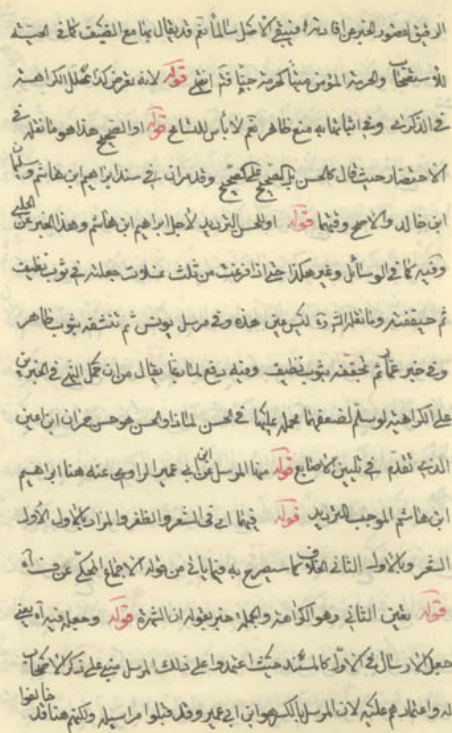 الخبر عن افادته فيبقى الاصل سالما نعم قد يقال بها مع
والحرمة المؤمن ميتا كحرمته حيا قوله لانه
في الذكرى وفي منع ظاهر نعم لا باس للتسامح قوله او الصحيح هذا هو ما نقله في
الاختصار حيث قال كالحسن بل الصحيح على الصحيح وقد مر ان في سند ابراهيم ابن هاشم و
ابن خالد والاصح وقفها قوله او الحسن الترديد لاجل ابراهيم ابن هاشم وهذا الخبر عن الحلبي
وفيه كما في الوسائل وغير هكذا حتى اذا فرغت من ثلث غسلات جعلته في ثوب نظيف
ثم جففته وما نقله الشره ليس بين هذه وفي مرسل يونس ثم تنشفه بثوب طاهر
وفي خبر عمار ثم تجففه بثوب نظيف وفيه دفع لما ربما يقال من ان حمل النهي في الخبرين
على الكراهية لو سلم لضعفهما محمله عليها في الحسن لماذا والحسن هو حسن حمران ابن اعين
الذي تقدم في تليين الاصابع قوله هنا المرسل عن ابن ابي عمير الراوي عنه هنا ابراهيم
ابن هاشم الموجب للترديد قوله فيهما اى في الشعر والظفر والمراد بالاول الاول
الشعر وبالاول الثاني الخلاف كما سيصرح به فيما ياتي من قوله الاجماع المحكى عن
قوله تعين الثاني وهو الكراهة والجملة خبر لقوله ان الشهرة قوله وجعله فيه آه يعني
جعل الارسال في الاول كالمسند حيث اعتمدوا على ذلك المرسل مبني على ذكر الاصحاب
له واعتمادهم عليه لان المرسل بالكسر هو ابن ابي عمير وقد قبلوا مراسيله ولكنهم هنا قد
خالفوا